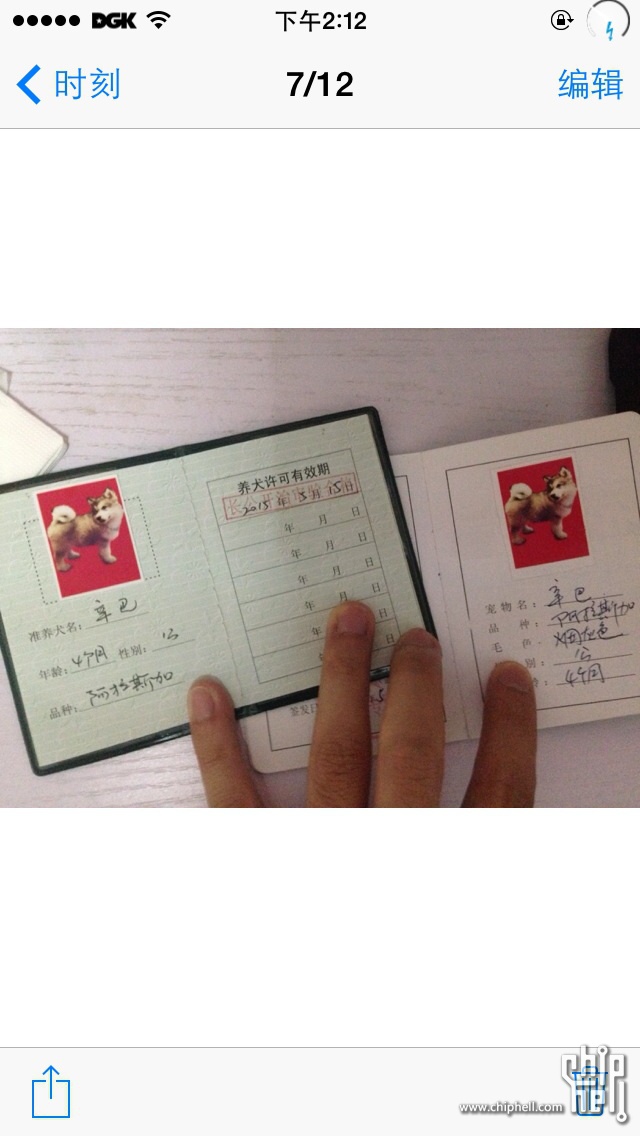 DGK 下午2:12
时刻 7/12 编辑
准养犬名：辛巴
年龄：4个月 性别：公
品种：阿拉斯加
养犬许可有效期
2015年5月15日
年 月 日
年 月 日
年 月 日
年 月 日
年 月 日
年 日
签发日
宠物名：辛巴
品种：阿拉斯加
毛色
别：公
4个月
www.chiphell.com
chip hell